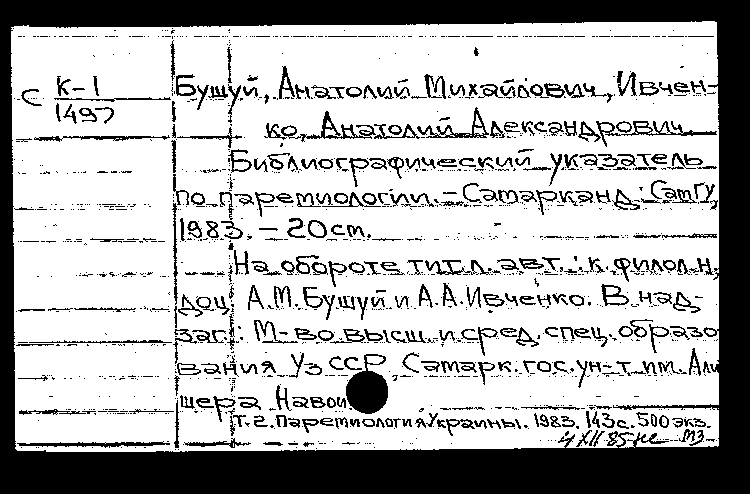 С К-1
1497
Бушуй, Анатолий Михайлович, Ивчен-
ко, Анатолий Александрович.
Библиографический указатель
по паремиологии. - Самарканд: СамГУ,
1983. - 20 см.
На обороте тит. л. авт.: к. филол. н.,
доц. А.М. Бушуй и А.А. Ивченко. В над-
заг.: М-во высш. и сред. спец. образо
вания УзССР, Самарк. гос. ун-т им. Али
шера Навои.
Т. 2. Паремиология Украины. 1983. 143 с. 500 экз.
4 XII 85 МЗ